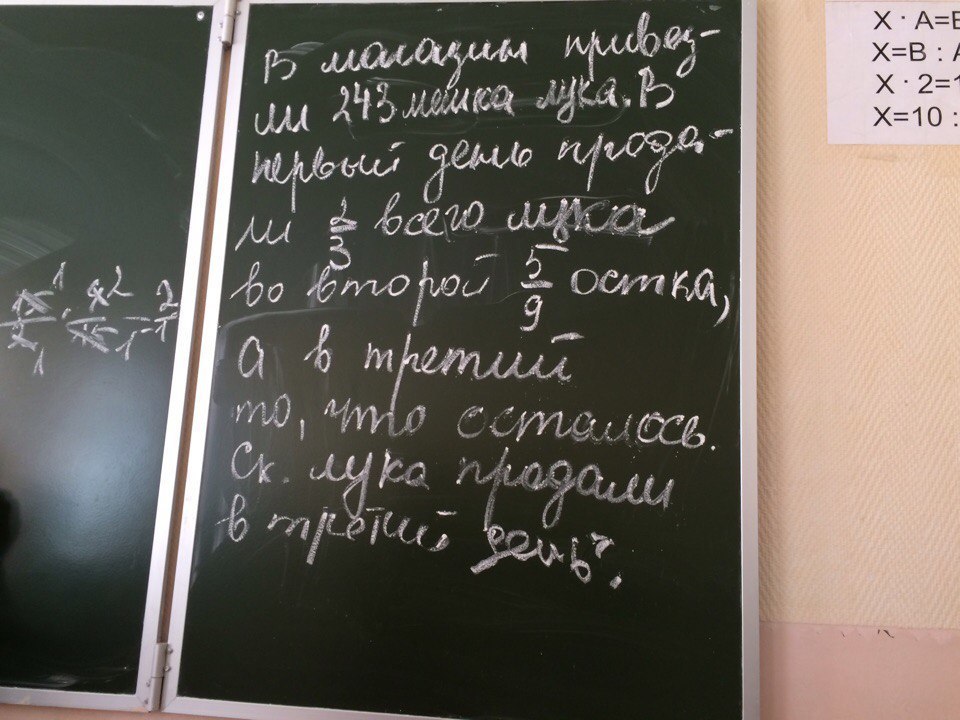 В магазин привез-
ли 243 мешка лука. В
первый день прода-
ли 2/3 всего лука
во второй 5/9 остка,
А в третий
то, что осталось.
Ск. лука продали
в третий день?
X · A=B
X=B : A
X · 2=1
X=10 :